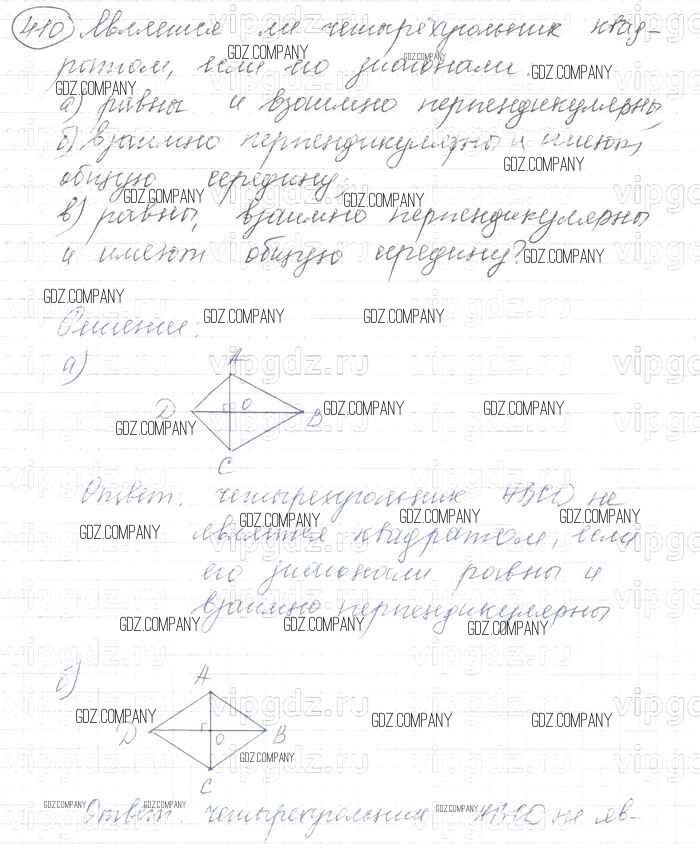 410 Является ли четырехугольник квад-
ратом, если его диагонали:
а) равны и взаимно перпендикулярны,
б) взаимно перпендикулярны и имеют
общую середину;
в) равны, взаимно перпендикулярны
и имеют общую середину?
Решение.
а)
A
D O B
C
Ответ. четырехугольник ABCD не
является квадратом, если
его диагонали равны и
взаимно перпендикулярны
б)
A
D O B
C
Ответ. четырехугольник ABCD не яв-
GDZ.COMPANY
vipgdz.ru